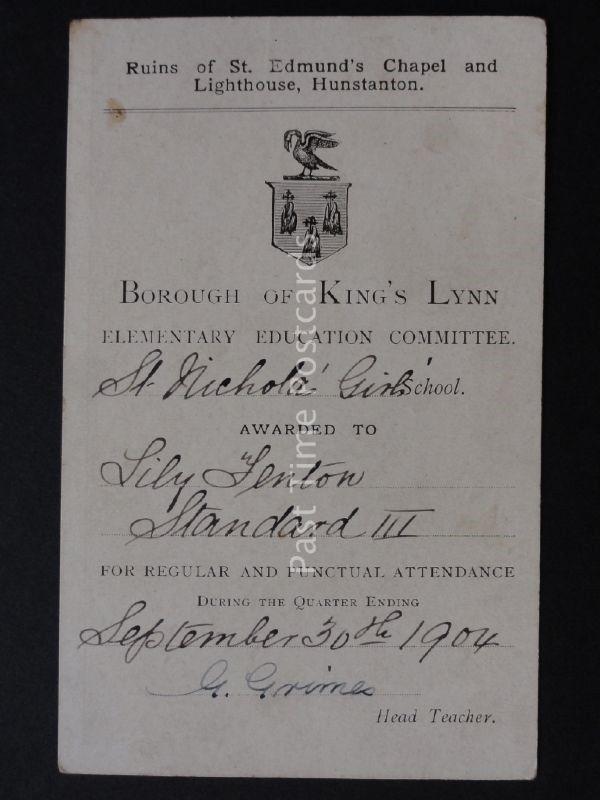 Ruins of St. Edmund's Chapel and
Lighthouse, Hunstanton.
BOROUGH OF KING'S LYNN
ELEMENTARY EDUCATION COMMITTEE.
St Nicholas' Girls' School.
AWARDED TO
Lily Fenton
Standard III
FOR REGULAR AND PUNCTUAL ATTENDANCE
DURING THE QUARTER ENDING
September 30th 1904
G. Grimes
Head Teacher.
Past Time Postcards